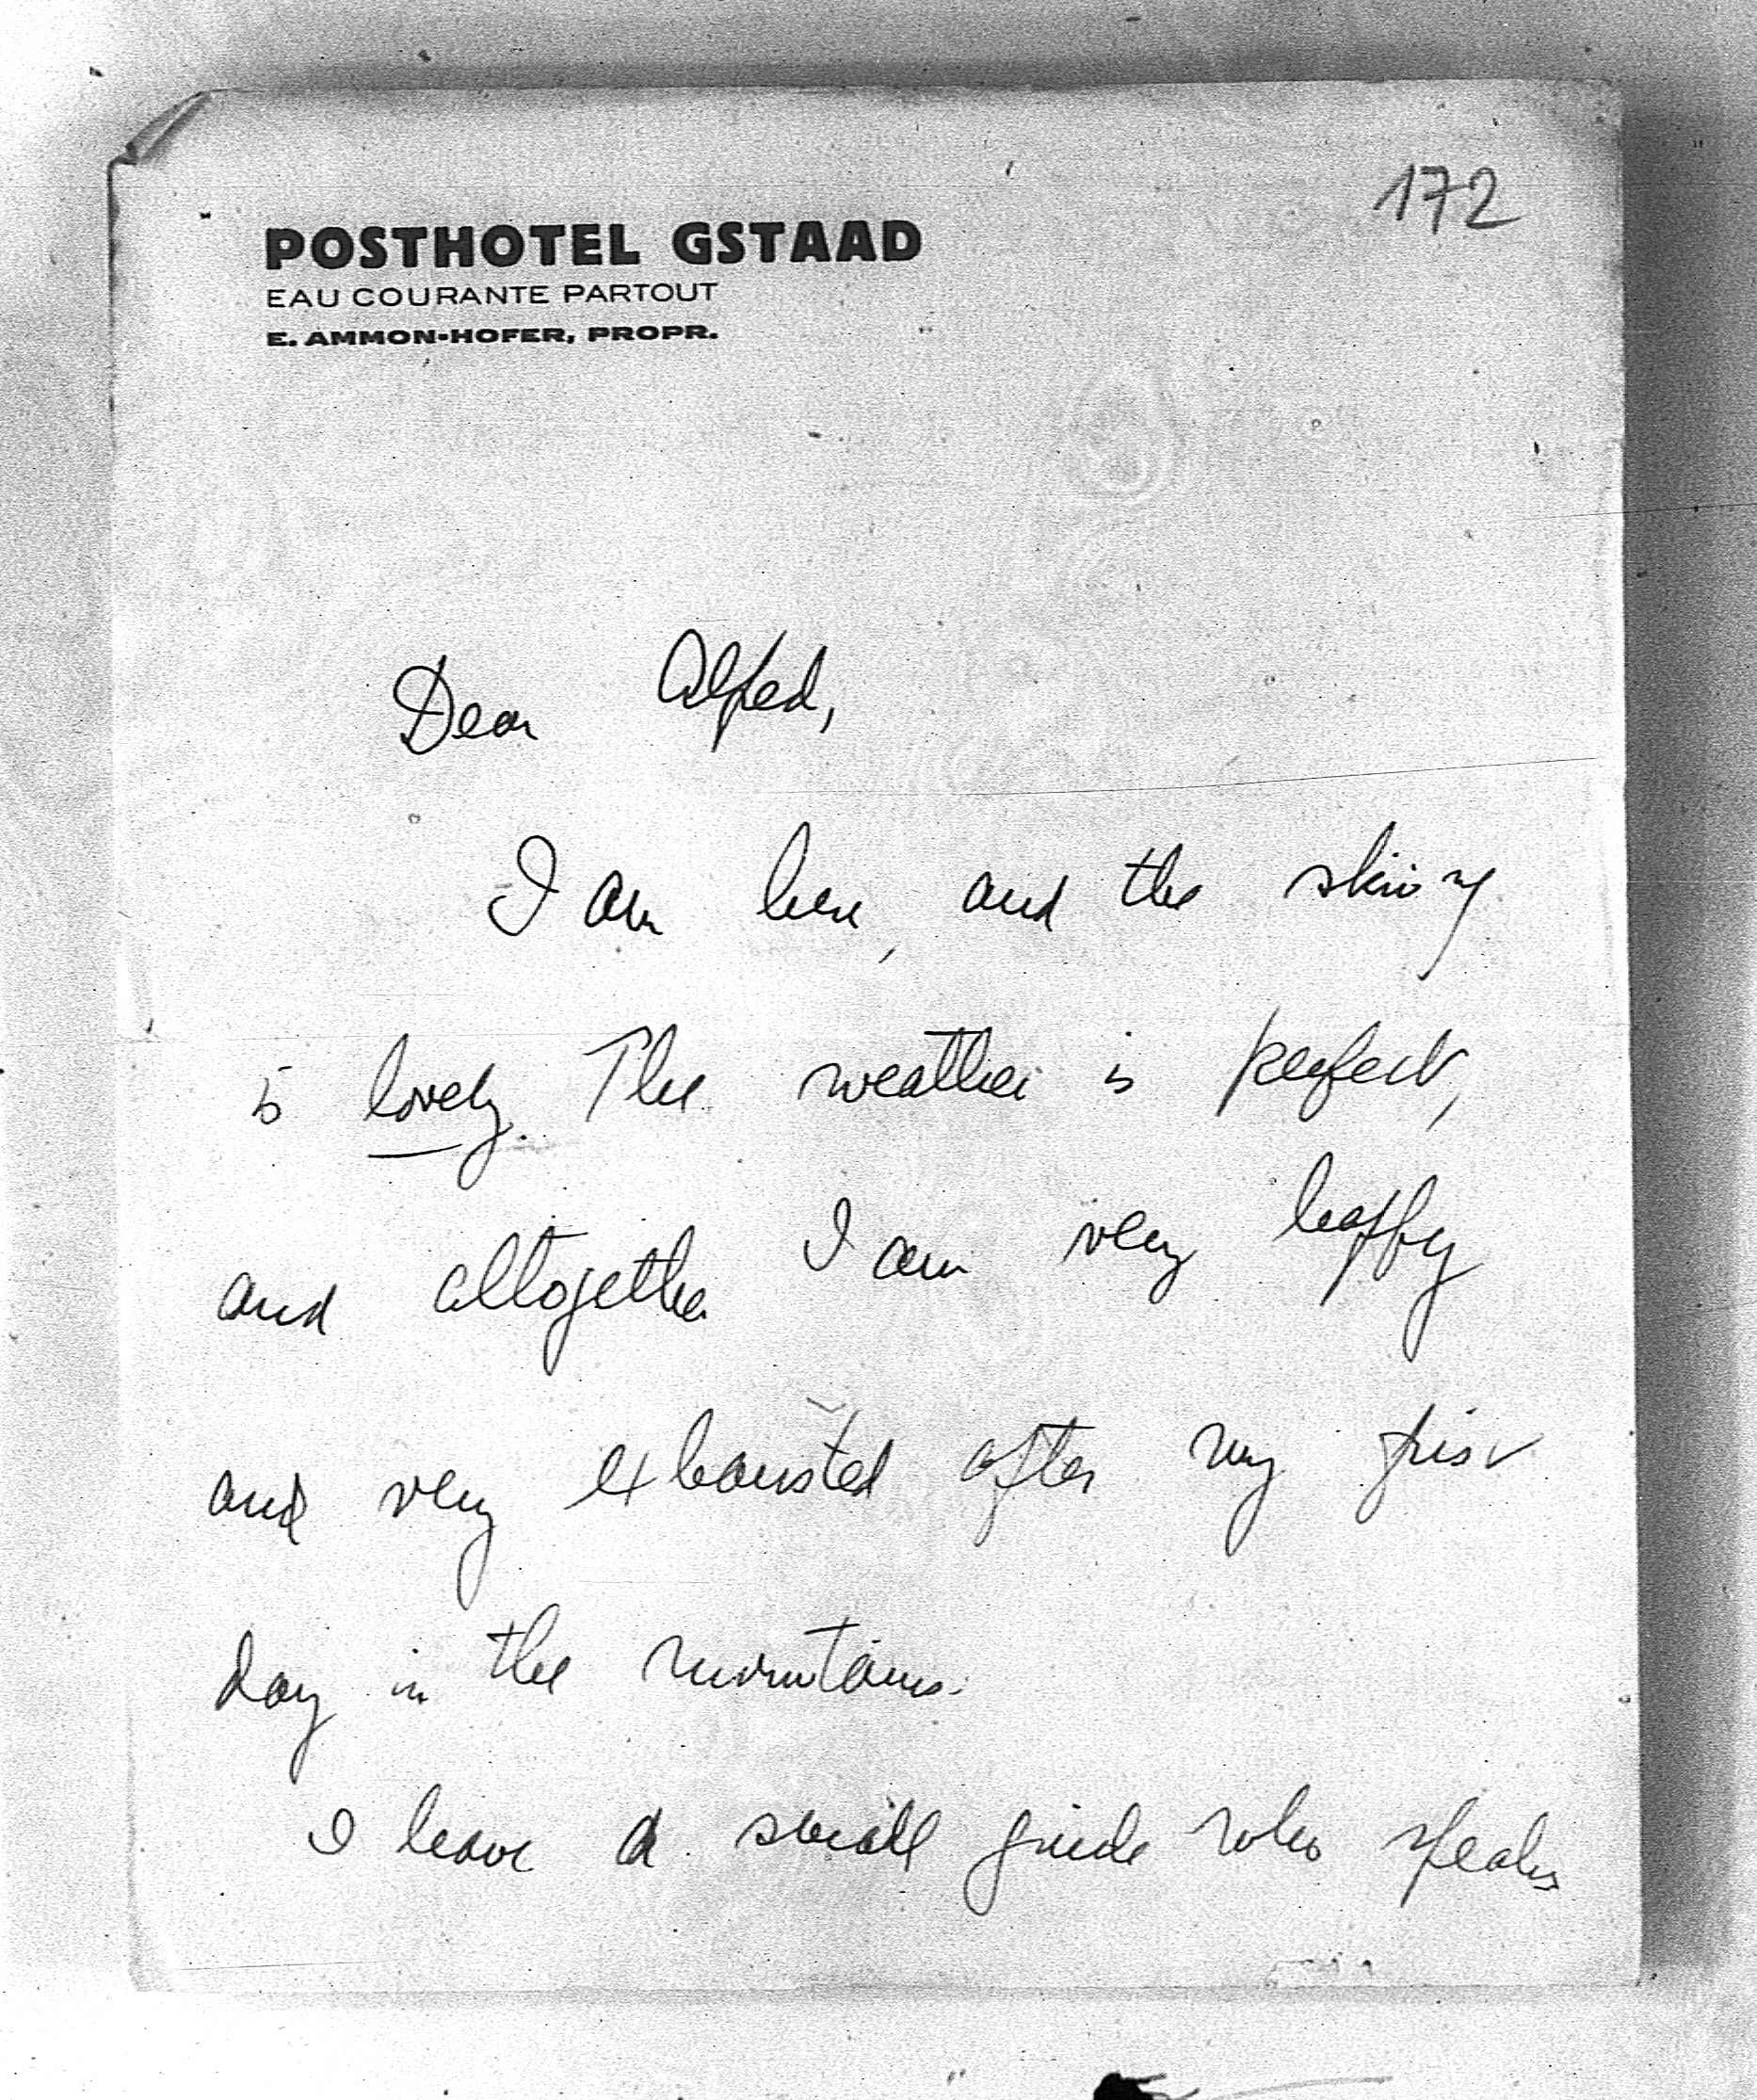 172
POSTHOTEL GSTAAD
EAU COURANTE PARTOUT
E. AMMON-HOFER, PROPR.
Dear Alfred,
I am here, and the skiing
is lovely. The weather is perfect,
and altogether I am very happy
and very exhausted after my first
day in the mountains.
I have a small guide who speaks